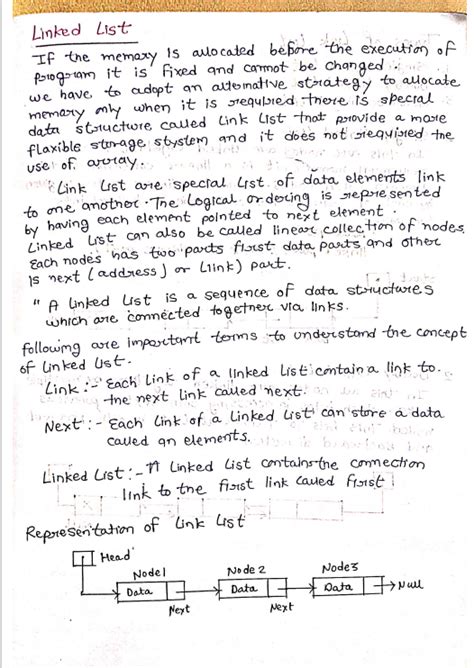 Linked List
If the memory is allocated before the execution of
program it is fixed and cannot be changed.
we have to adopt an alternative strategy to allocate
memory only when it is required there is special
data structure called Link List that provide a more
flaxible storage stystem and it does not required the
use of array.
Link List are special List of data elements link
to one another. The Logical ordering is represented
by having each element pointed to next element.
Linked List can also be called linear collection of nodes.
Each nodes has two parts first data parts and other
is next (address) or Link) part.
" A linked List is a sequence of data structures
which are connected together via links.
following are important terms to understand the concept
of Linked List.
Link :- Each Link of a linked List contain a link to.
the next link called next.
Next :- Each Link of a Linked List can store a data
called an elements.
Linked List :- A Linked List contains the connection
link to the first link called first
Representation of Link List
Head
Node1 Node 2 Node3
Data Data Data Null
Next Next